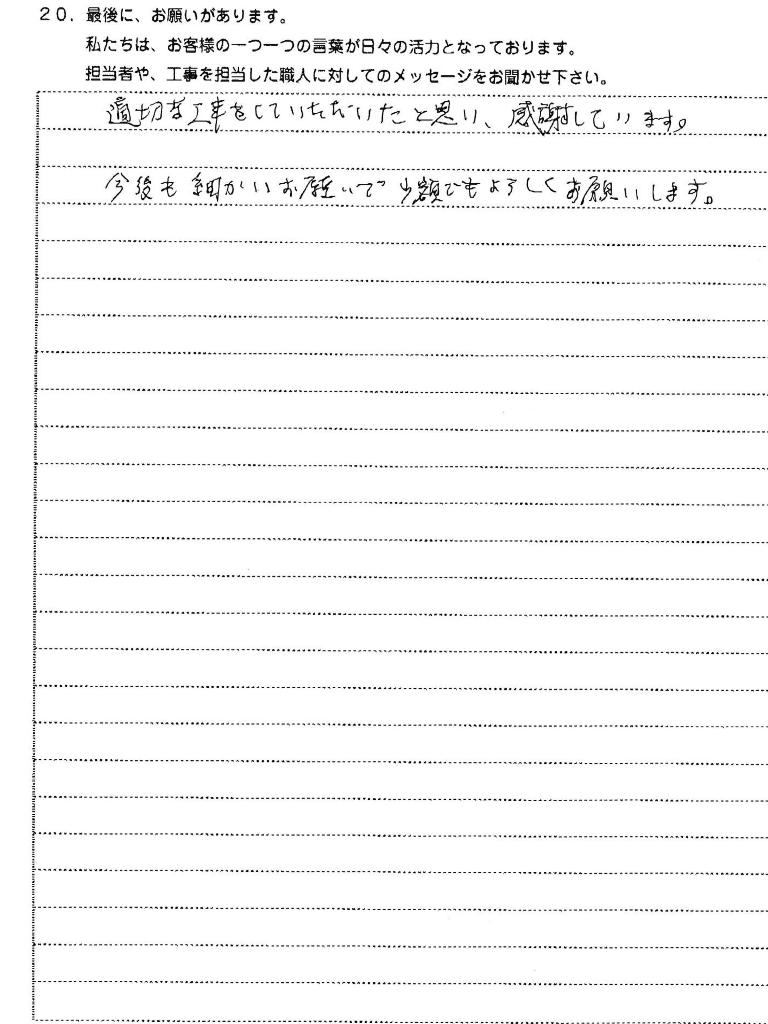 20. 最後に、お願いがあります。
私たちは、お客様の一つ一つの言葉が日々の活力となっております。
担当者や、工事を担当した職人に対してのメッセージをお聞かせ下さい。
適切な工事をしていただいたと思い、感謝しています。
今後も細かいお願いで少額でもよろしくお願いします。